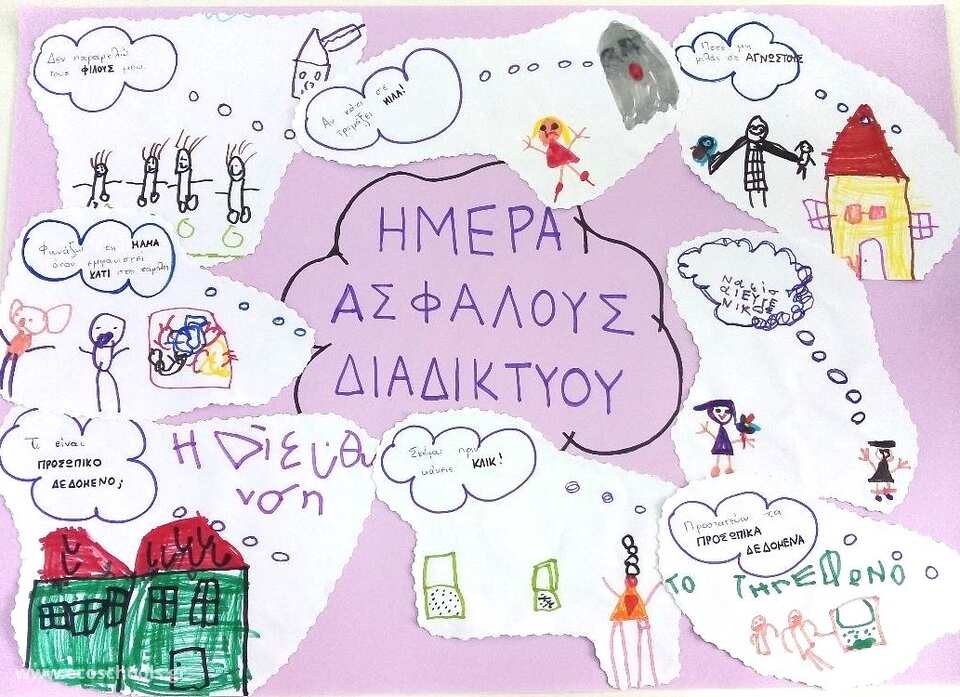 Δεν παραμελώ
τους ΦΙΛΟΥΣ μου.
Αν κάτι σε
τρομάξει ΜΙΛΑ!
Ποτέ μη
μιλάς σε ΑΓΝΩΣΤΟΥΣ
Φωνάζω τη ΜΑΜΑ
όταν εμφανιστεί
ΚΑΤΙ στην οθόνη
ΗΜΕΡΑ
ΑΣΦΑΛΟΥΣ
ΔΙΑΔΙΚΤΥΟΥ
Να είσαι
ΕΥΓΕ
ΝΙΚΟΣ
Τι είναι
ΠΡΟΣΩΠΙΚΟ
ΔΕΔΟΜΕΝΟ;
Η Διεύθυ
νση
Σκέψου πριν
κάνεις ΚΛΙΚ!
Προστατεύω τα
ΠΡΟΣΩΠΙΚΑ
ΔΕΔΟΜΕΝΑ
ΤΟ ΤΗΛΕΦΩΝΟ
www.ecoschools.gr